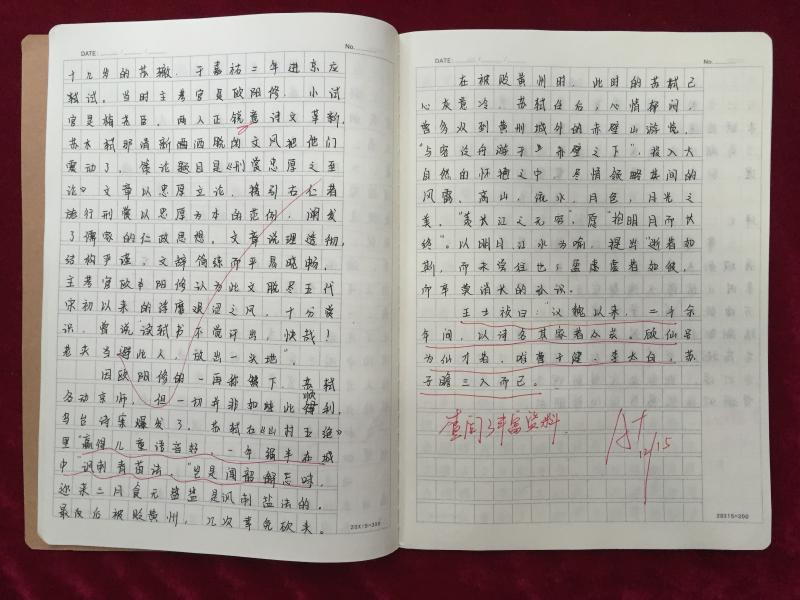 DATE:
No.
十九岁的苏辙,于嘉祐二年进京应
试。当时主考官是欧阳修,小试
官是梅尧臣,两人正锐意诗文革新,
苏轼那清新洒脱的文风把他们
震动了。策论题目是《刑赏忠厚之至
论》文章以忠厚立论,援引古仁者
施行刑赏以忠厚为本的范例,阐发
了儒家的仁政思想。文章说理透彻,
结构严谨,文辞简练而平易晓畅,
主考官欧阳修认为此文脱尽五代
宋初以来的浮靡艰涩之风,十分赏
识,曾说读轼书不觉汗出,快哉!
老夫当避此人,放出一头地"。
因欧阳修的一再称赞下,苏轼
名动京师,但一切并非如此顺利,
乌台诗案爆发了,苏轼在《山村五绝》
里"赢得儿童语音好,一年强半在城
中"讽刺青苗法,"岂是闻韶解忘味,
迩来三月食无盐盐是讽刺盐法的。
最后被贬黄州,几次幸免砍头。
20X15=300
DATE:
No.
在被贬黄州时,此时的苏轼已
心灰意冷,苏轼任后,心情郁闷,
曾多次到黄州城外的赤壁山游览,
"与客泛舟游于赤壁之下",投入大
自然的怀抱之中,尽情领略其间的
风露、高山、流水、月色,月光之
美,"羡长江之无穷",愿"抱明月而长
终"。以明月江水为喻,提出"逝者如
斯,而未尝往也;盈虚者如彼,
而卒莫消长的认识。
王士祯曰:"汉魏以来,二千余
年间,以诗名其家者众矣。顾所号
为仙才者,唯曹子建、李太白、苏
子瞻三人而已。
查阅了丰富资料
A+
12/15
20X15=300